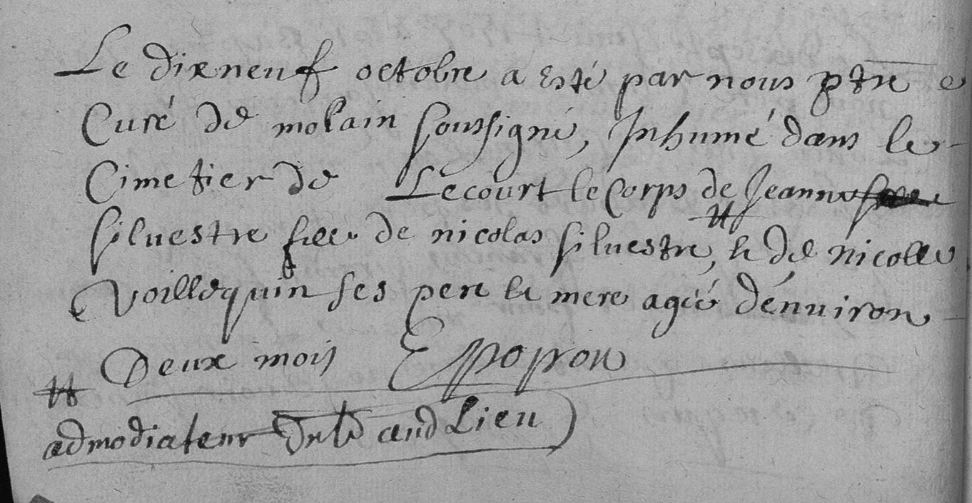 Le dixneuf octobre a esté par nous pbre
Curé de molain soussigné, Inhumé dans le
Cimetier de Lecourt le Corps de Jeanne
silvestre fille de nicolas silvestre, # & de nicolle
Voillequin ses pere & mere agée d'environ
Deux mois Eppopon
#
admodiateur dud Lieu